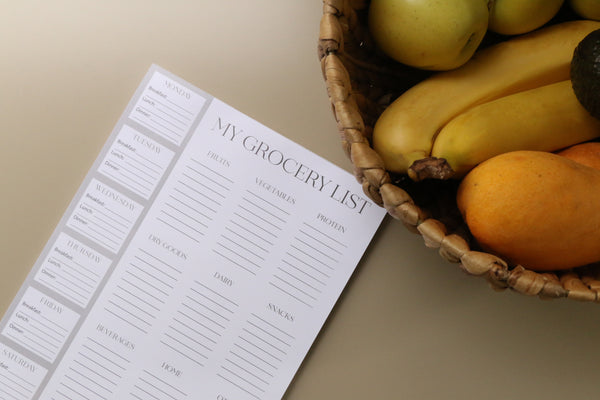 MONDAY
Breakfast:
Lunch:
Dinner:
TUESDAY
Breakfast:
Lunch:
Dinner:
WEDNESDAY
Breakfast:
Lunch:
Dinner:
THURSDAY
Breakfast:
Lunch:
Dinner:
FRIDAY
Breakfast:
Lunch:
Dinner:
SATURDAY
MY GROCERY LIST
FRUITS
VEGETABLES
PROTEIN
DRY GOODS
DAIRY
SNACKS
BEVERAGES
HOME